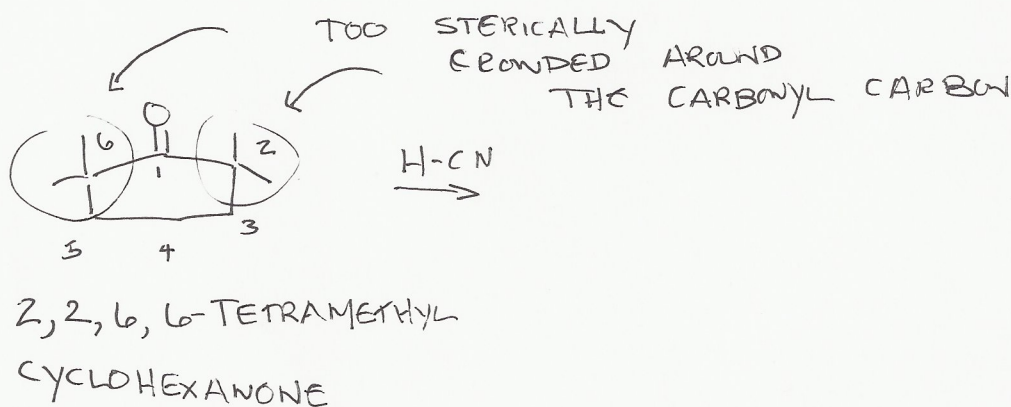 TOO STERICALLY
CROWDED AROUND
THE CARBONYL CARBON
O
6
2
1
H-CN
3
5
4
2,2,6,6-TETRAMETHYL
CYCLOHEXANONE